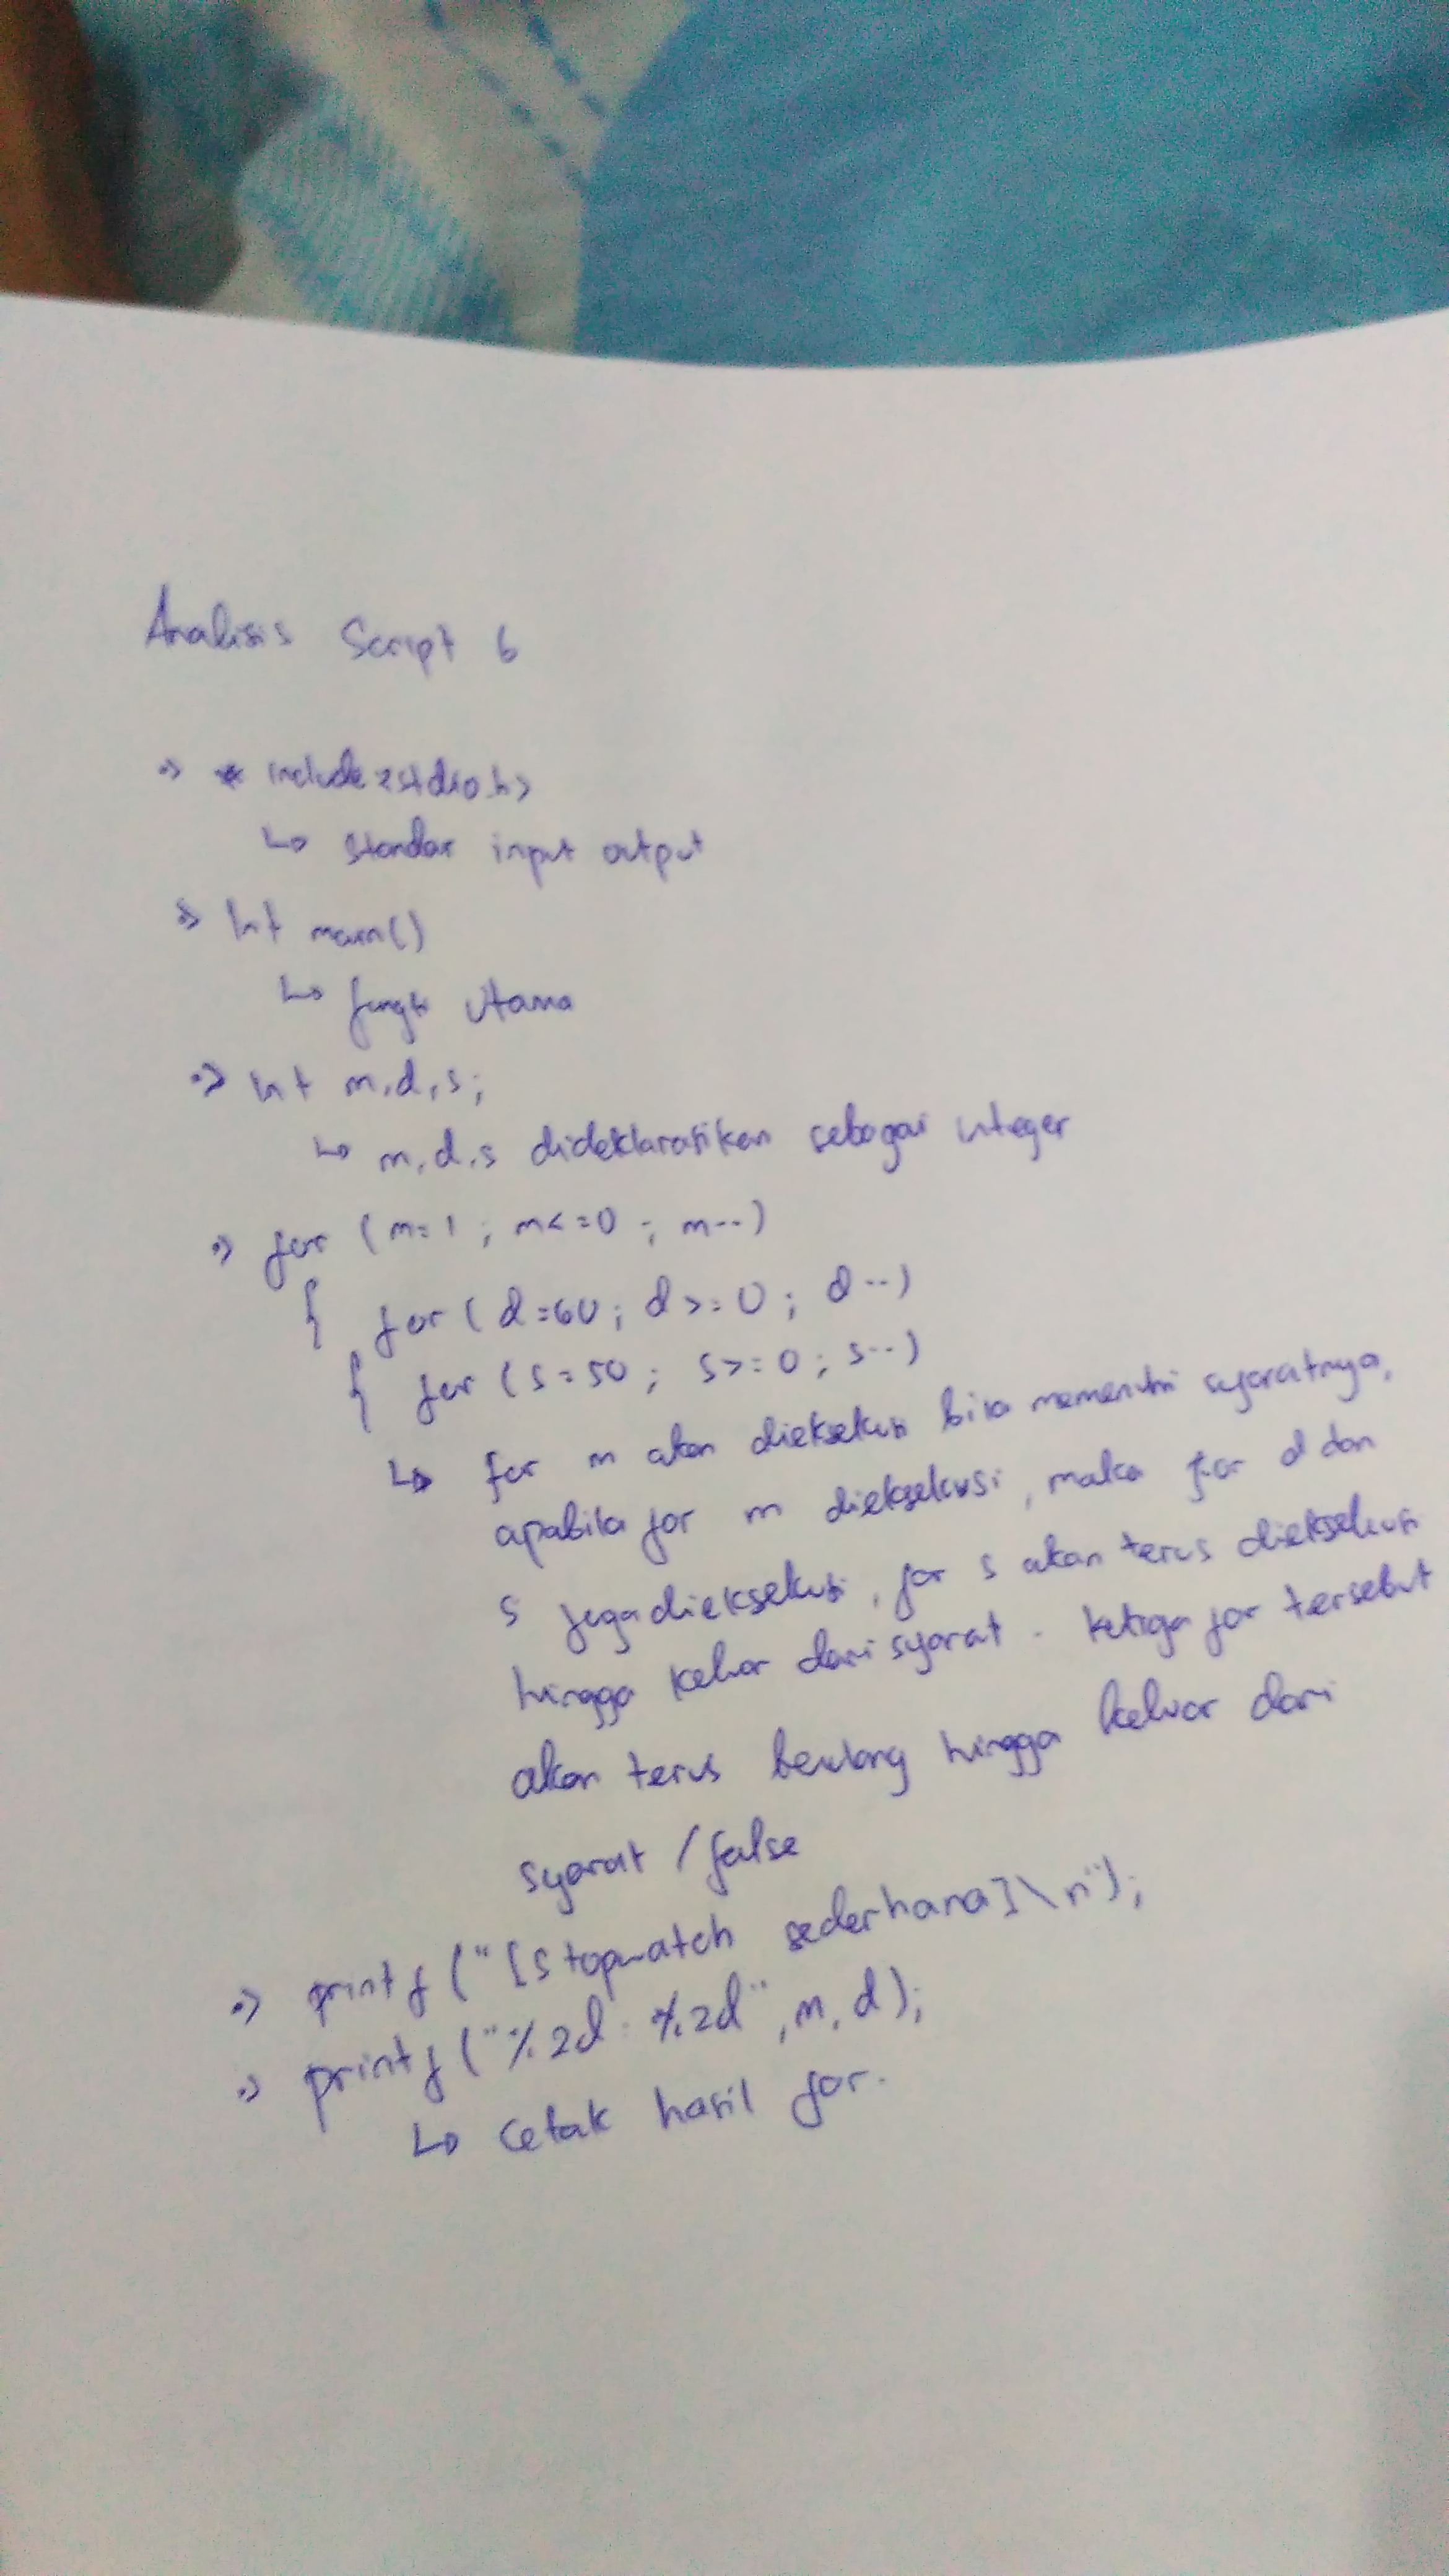 Analisis Script 6
=> * include <stdio.h>
↳ standar input output
=> Int main()
↳ fungsi utama
=> Int m,d,s;
↳ m,d,s dideklarasikan sebagai integer
=> for (m=1 ; m<=0 ; m--)
{ for (d=60 ; d>=0 ; d--)
{ for (s=50 ; s>=0 ; s--)
↳ for m akan dieksekusi bila memenuhi syaratnya,
apabila for m dieksekusi, maka for d dan
s juga dieksekusi, for s akan terus dieksekusi
hingga keluar dari syarat. ketiga for tersebut
akan terus berulang hingga keluar dari
syarat / false
=> printf ("[Stopwatch sederhana]\n");
=> printf ("%2d : %2d", m, d);
↳ cetak hasil for.